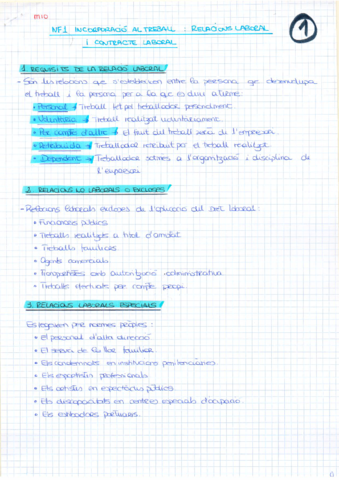 M10
NF1 INCORPORACIÓ AL TREBALL : RELACIONS LABORAL
I CONTRACTE LABORAL
1
1. REQUISITS DE LA RELACIÓ LABORAL
- Són les relacions que s'estableixen entre la persona que desenvolupa
el treball i la persona per a la que es duu a terme:
• Personal → Treball fet pel treballador personalment.
• Voluntària → Treball realitzat voluntàriament.
• Per compte d'altri → el fruit del treball serà de l'empresari.
• Retribuïda → Treballador retribuït pel treball realitzat.
• Dependent → Treballador sotmès a l'organització i disciplina de
l'empresari.
2. RELACIONS NO LABORALS O EXCLOSES
- Relacions laborals excloses de l'aplicació del dret laboral:
• Funcionaris públics.
• Treballs realitzats a títol d'amistat.
• Treballs familiars.
• Agents comercials.
• Transportistes amb autorització administrativa.
• Treballs efectuats per compte propi.
3. RELACIONS LABORALS ESPECIALS
Es regeixen per normes pròpies:
• El personal d'alta direcció
• El servei de la llar familiar.
• Els condemnats en institucions penitenciàries.
• Els esportistes professionals.
• Els artistes en espectacles públics.
• Els discapacitats en centres especials d'ocupació.
• Els estibadors portuaris.